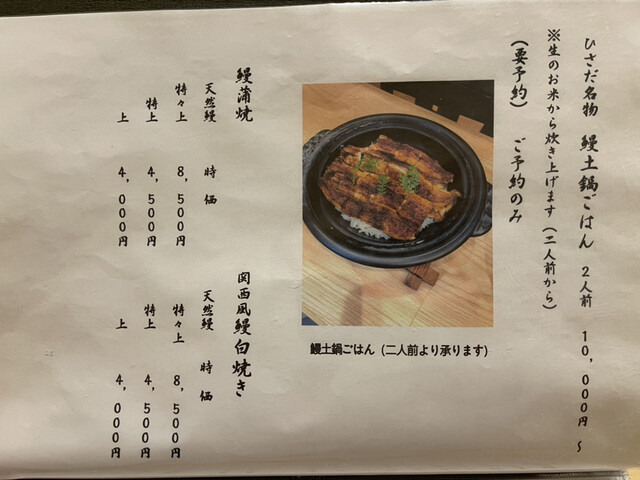 ひさだ名物　鰻土鍋ごはん　２人前　１０，０００円　～
※生のお米から炊き上げます（二人前から）
（要予約）　ご予約のみ
鰻土鍋ごはん（二人前より承ります）
鰻蒲焼
天然鰻　時価
特々上　８，５００円
特上　４，５００円
上　４，０００円
関西風鰻白焼き
天然鰻　時価
特々上　８，５００円
特上　４，５００円
上　４，０００円